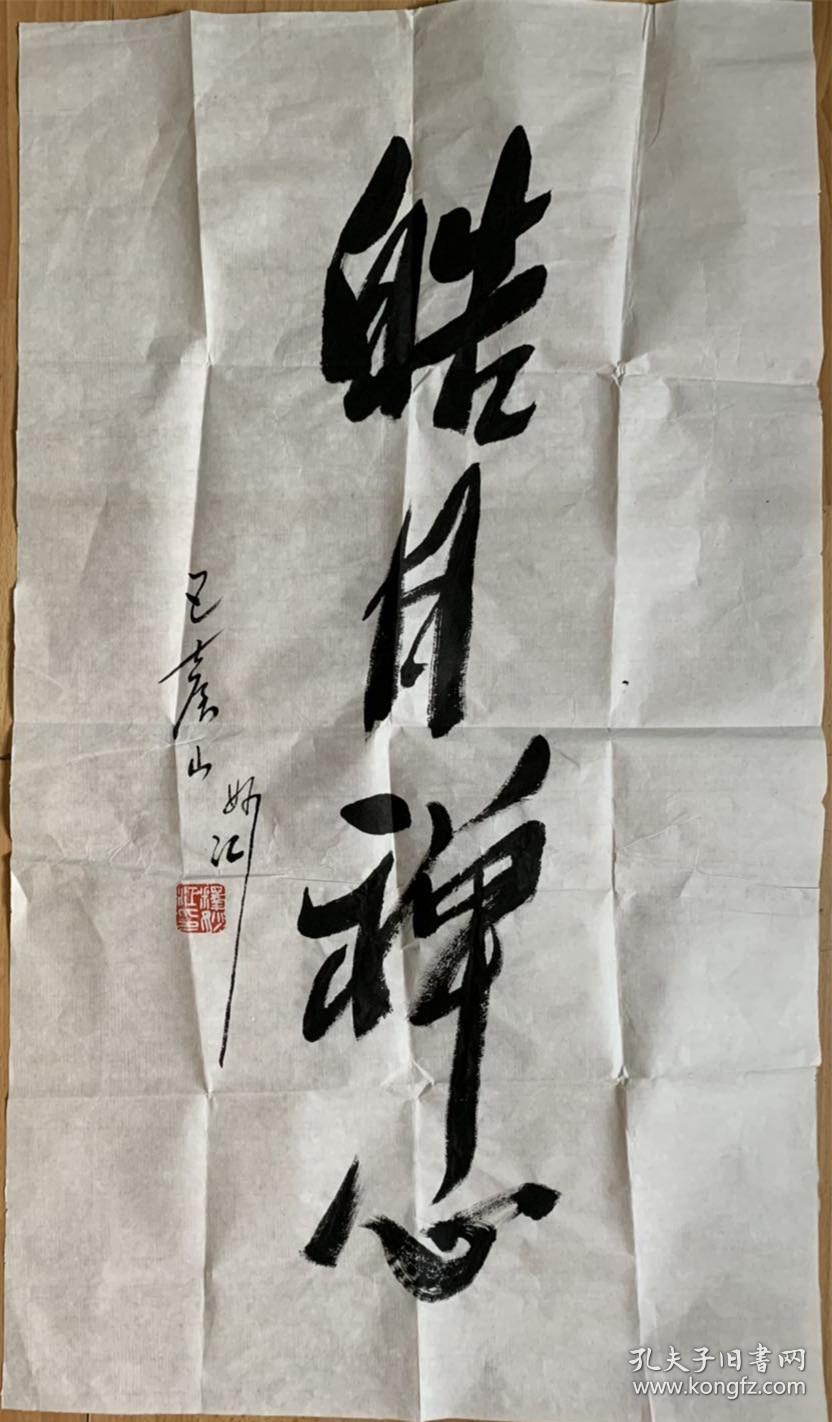 皓月禅心
山
妙江
孔夫子旧书网
www.kongfz.com